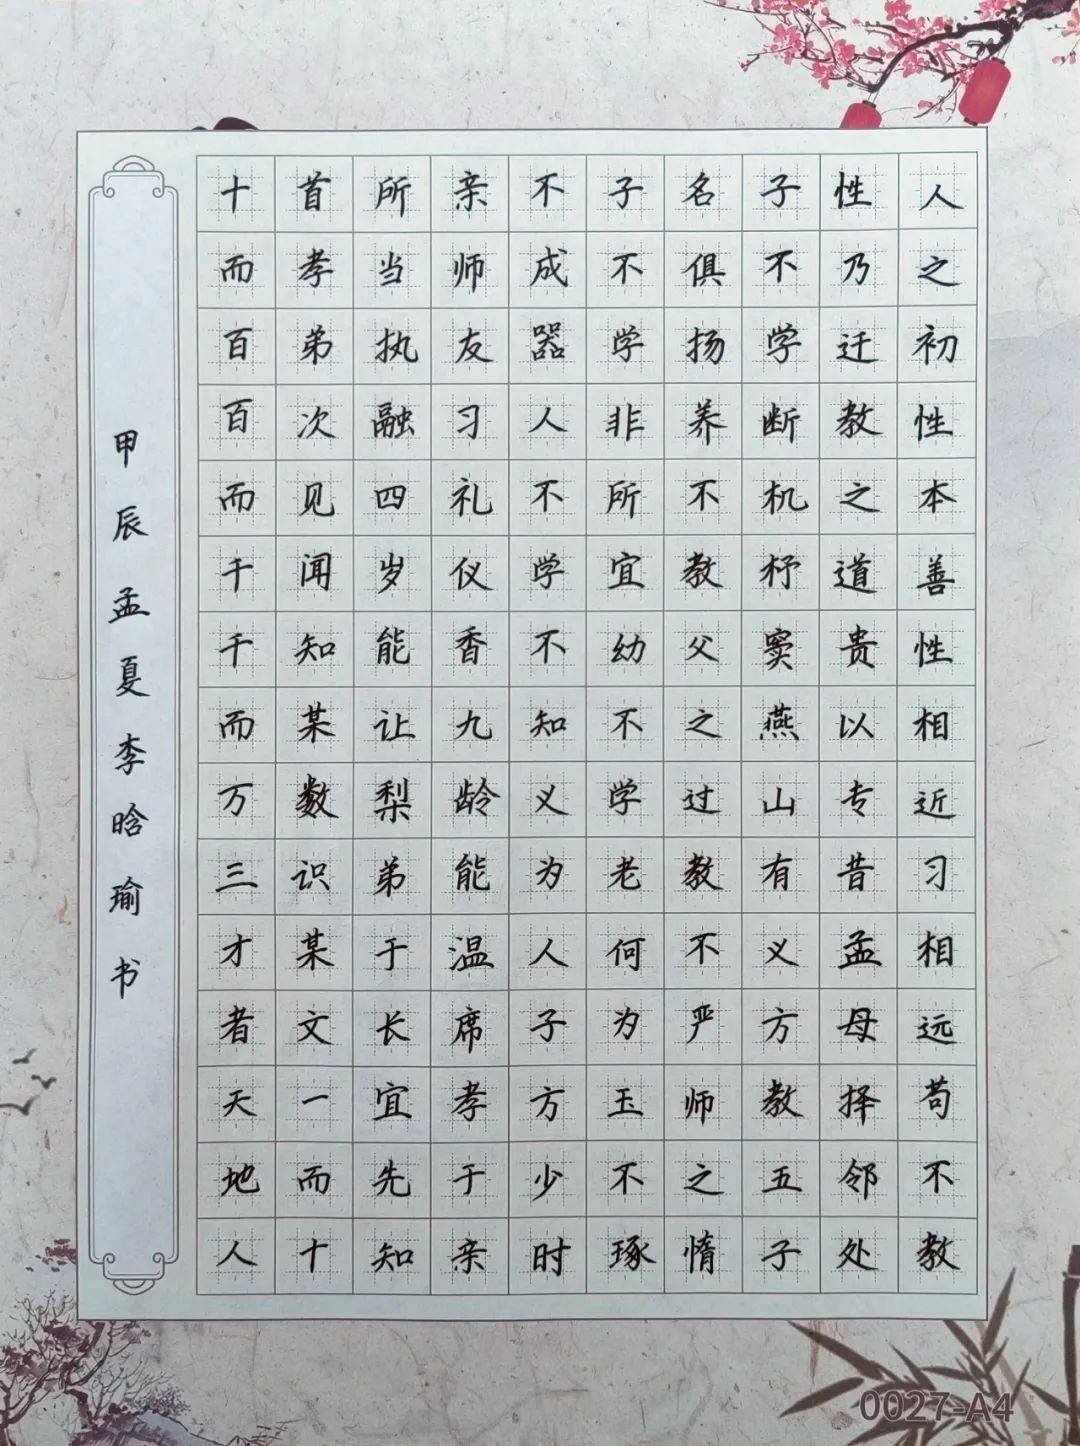 人之初性本善性相近习相远苟不教
性乃迁教之道贵以专昔孟母择邻处
子不学断机杼窦燕山有义方教五子
名俱扬养不教父之过教不严师之惰
子不学非所宜幼不学老何为玉不琢
不成器人不学不知义为人子方少时
亲师友习礼仪香九龄能温席孝于亲
所当执融四岁能让梨弟于长宜先知
首孝弟次见闻知某数识某文一而十
十而百百而千千而万三才者天地人
甲辰孟夏李晗瑜书
0027-A4